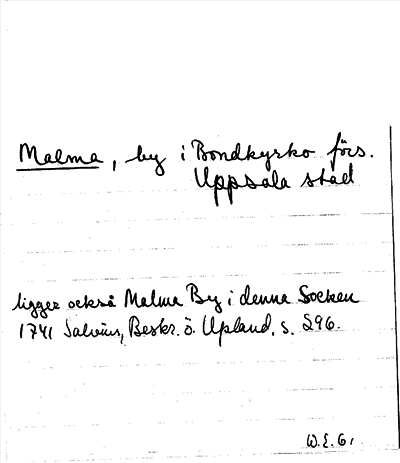 Malma, by i Bondkyrko förs.
Uppsala stad
ligger också Malma By i denna Socken
1741 Salvius, Beskr. ö. Upland, s. 296.
W.E.6,